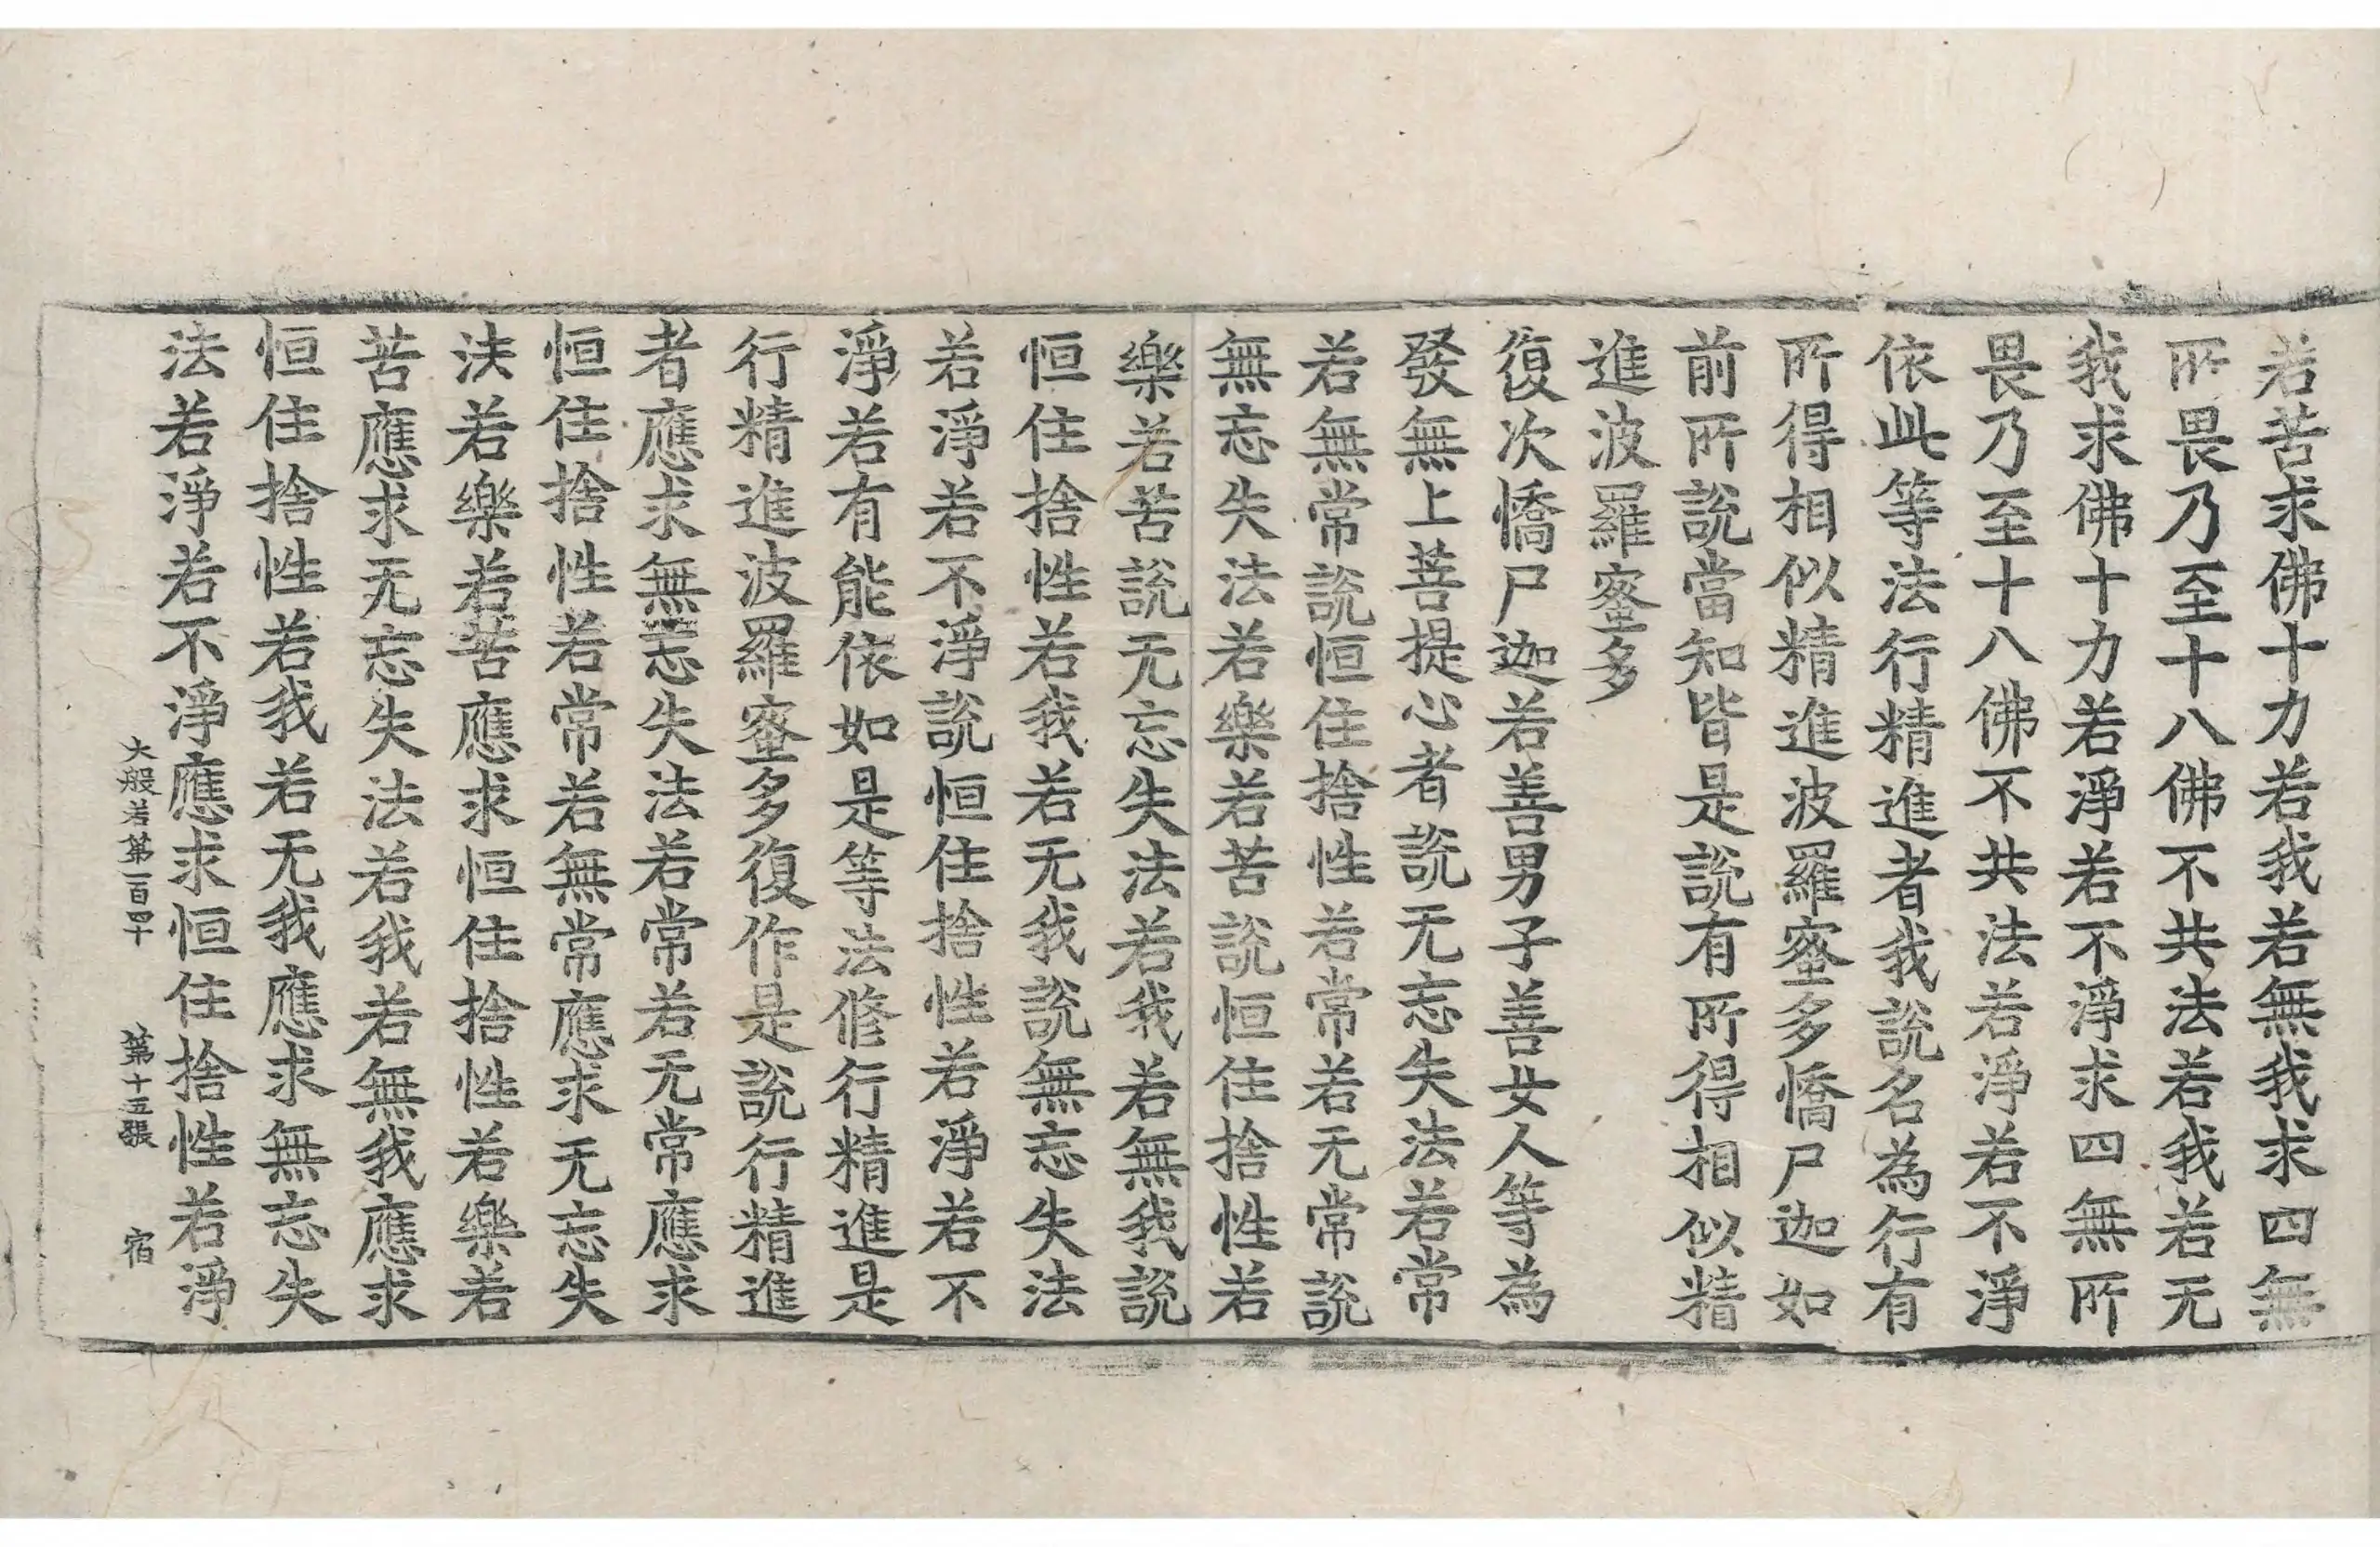 若苦求佛十力若我若無我求四無
所畏乃至十八佛不共法若我若无
我求佛十力若淨若不淨求四無所
畏乃至十八佛不共法若淨若不淨
依此等法行精進者我說名為行有
所得相似精進波羅蜜多憍尸迦如
前所說當知皆是說有所得相似精
進波羅蜜多
復次憍尸迦若善男子善女人等為
發無上菩提心者說无忘失法若常
若無常說恒住捨性若常若无常說
無忘失法若樂若苦說恒住捨性若
樂若苦說无忘失法若我若無我說
恒住捨性若我若无我說無忘失法
若淨若不淨說恒住捨性若淨若不
淨若有能依如是等法修行精進是
行精進波羅蜜多復作是說行精進
者應求無忘失法若常若无常應求
恒住捨性若常若無常應求无忘失
法若樂若苦應求恒住捨性若樂若
苦應求无忘失法若我若無我應求
恒住捨性若我若无我應求無忘失
法若淨若不淨應求恒住捨性若淨
大般若第一百四十 第十五張 宿